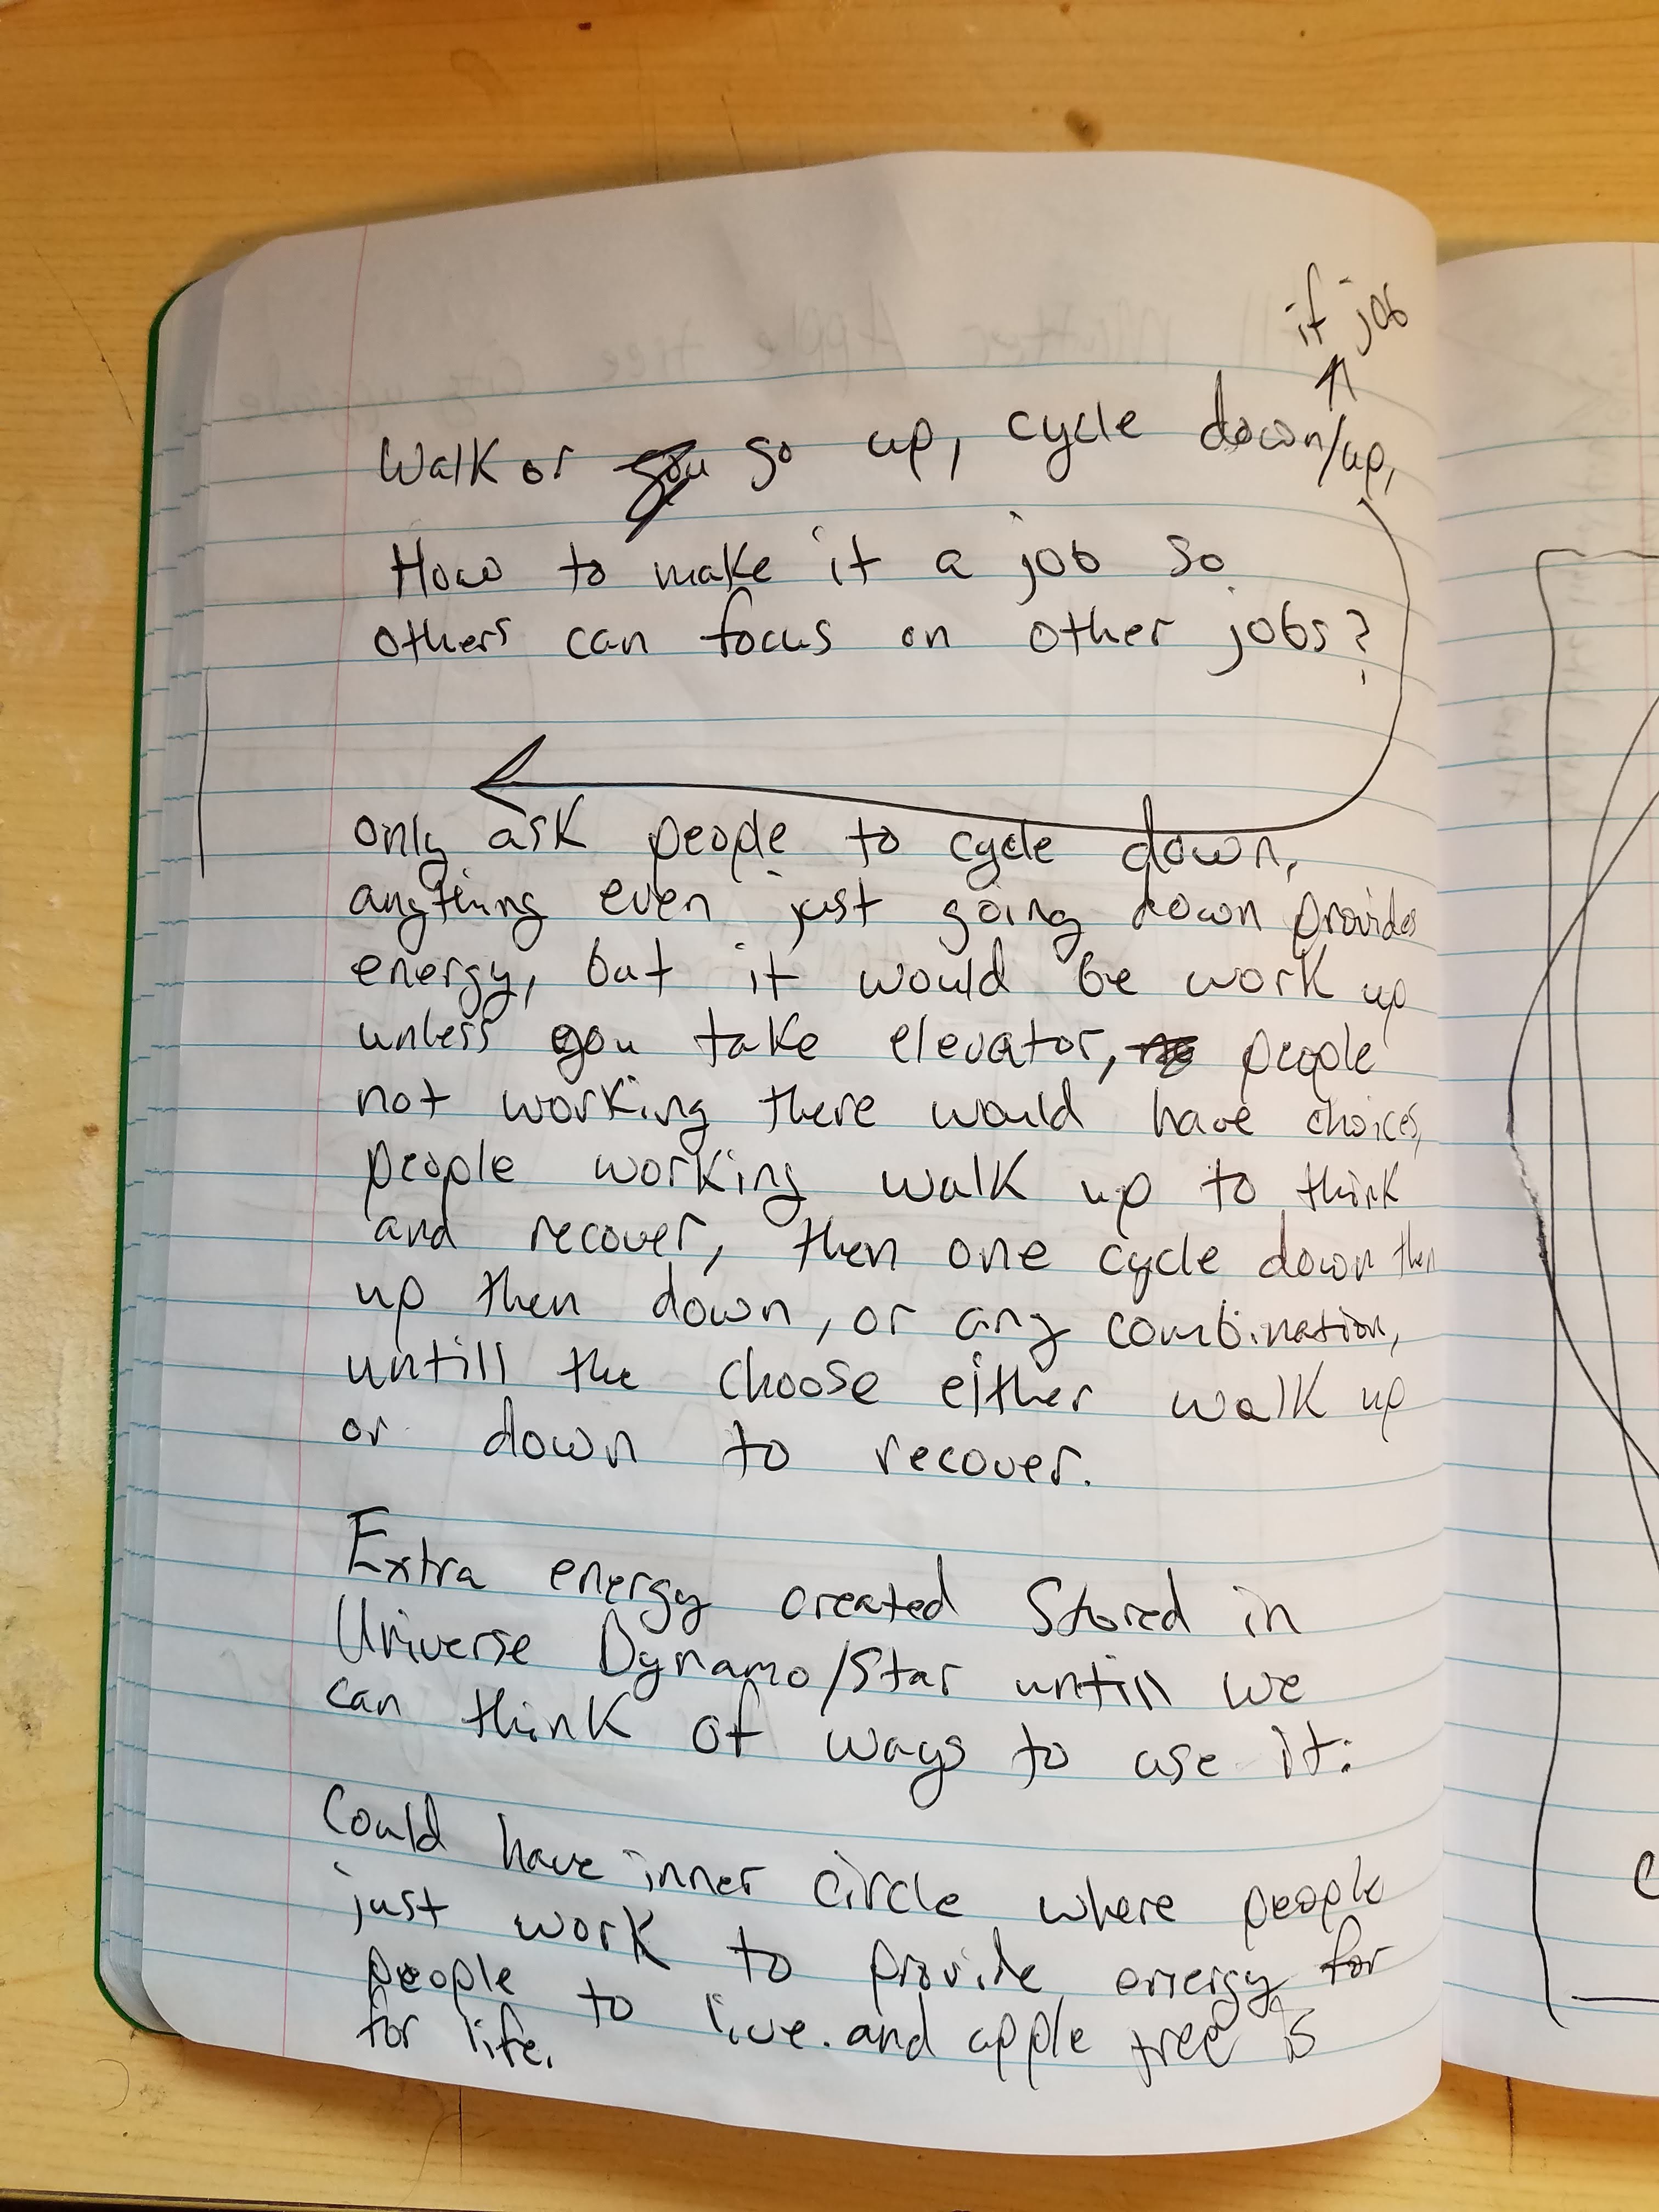 if job
Walk or you go up, cycle down/up,
How to make it a job so
others can focus on other jobs?
only ask people to cycle down,
anything even just going down provides
energy, but it would be work up
unless you take elevator, people
not working there would have choices,
people working walk up to think
and recover, then one cycle down then
up then down, or any combination,
untill the choose either walk up
or down to recover.
Extra energy created Stored in
Universe Dynamo/Star untill we
can think of ways to use it:
Could have inner circle where people
just work to provide energy for
people to live. and apple tree is
for life.